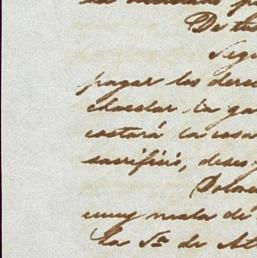 De tu
Segu
pagar los derec
chocolar la ga
costará la cosa
sacrificio, deseo
muy mala de
la Sra. de Al